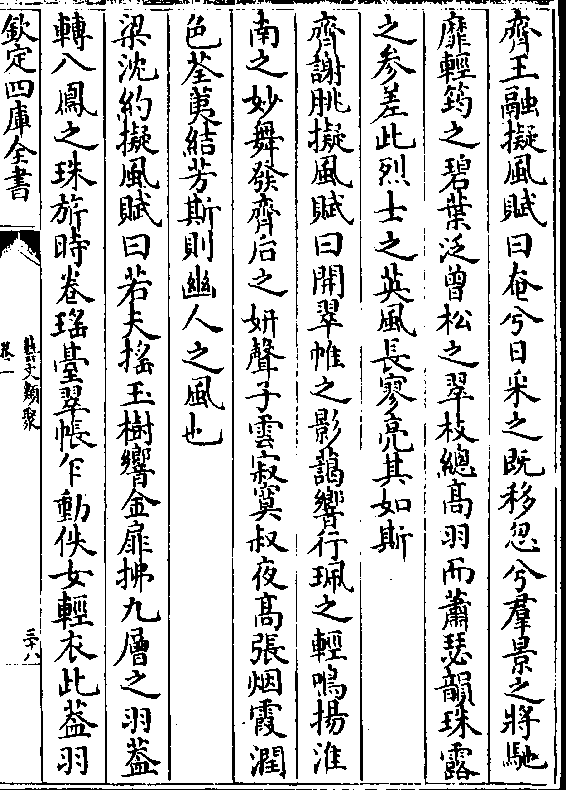 齊王融擬風賦曰奄兮日采之既移忽兮羣景之將馳
靡輕筠之碧葉泛曾松之翠枝總高羽而蕭瑟韻珠露
之參差此烈士之英風長寥亮其如斯
齊謝朓擬風賦曰開翠帷之影藹響行珮之輕鳴揚淮
南之妙舞發齊后之妍聲子雲寂寞叔夜高張烟霞潤
色荃荑結芳斯則幽人之風也
梁沈約擬風賦曰若夫搖玉樹響金扉拂九層之羽葢
轉八鳳之珠旂時卷瑤臺翠帳乍動佚女輕衣此葢羽
欽定四庫全書
藝文類聚
卷一
三十八